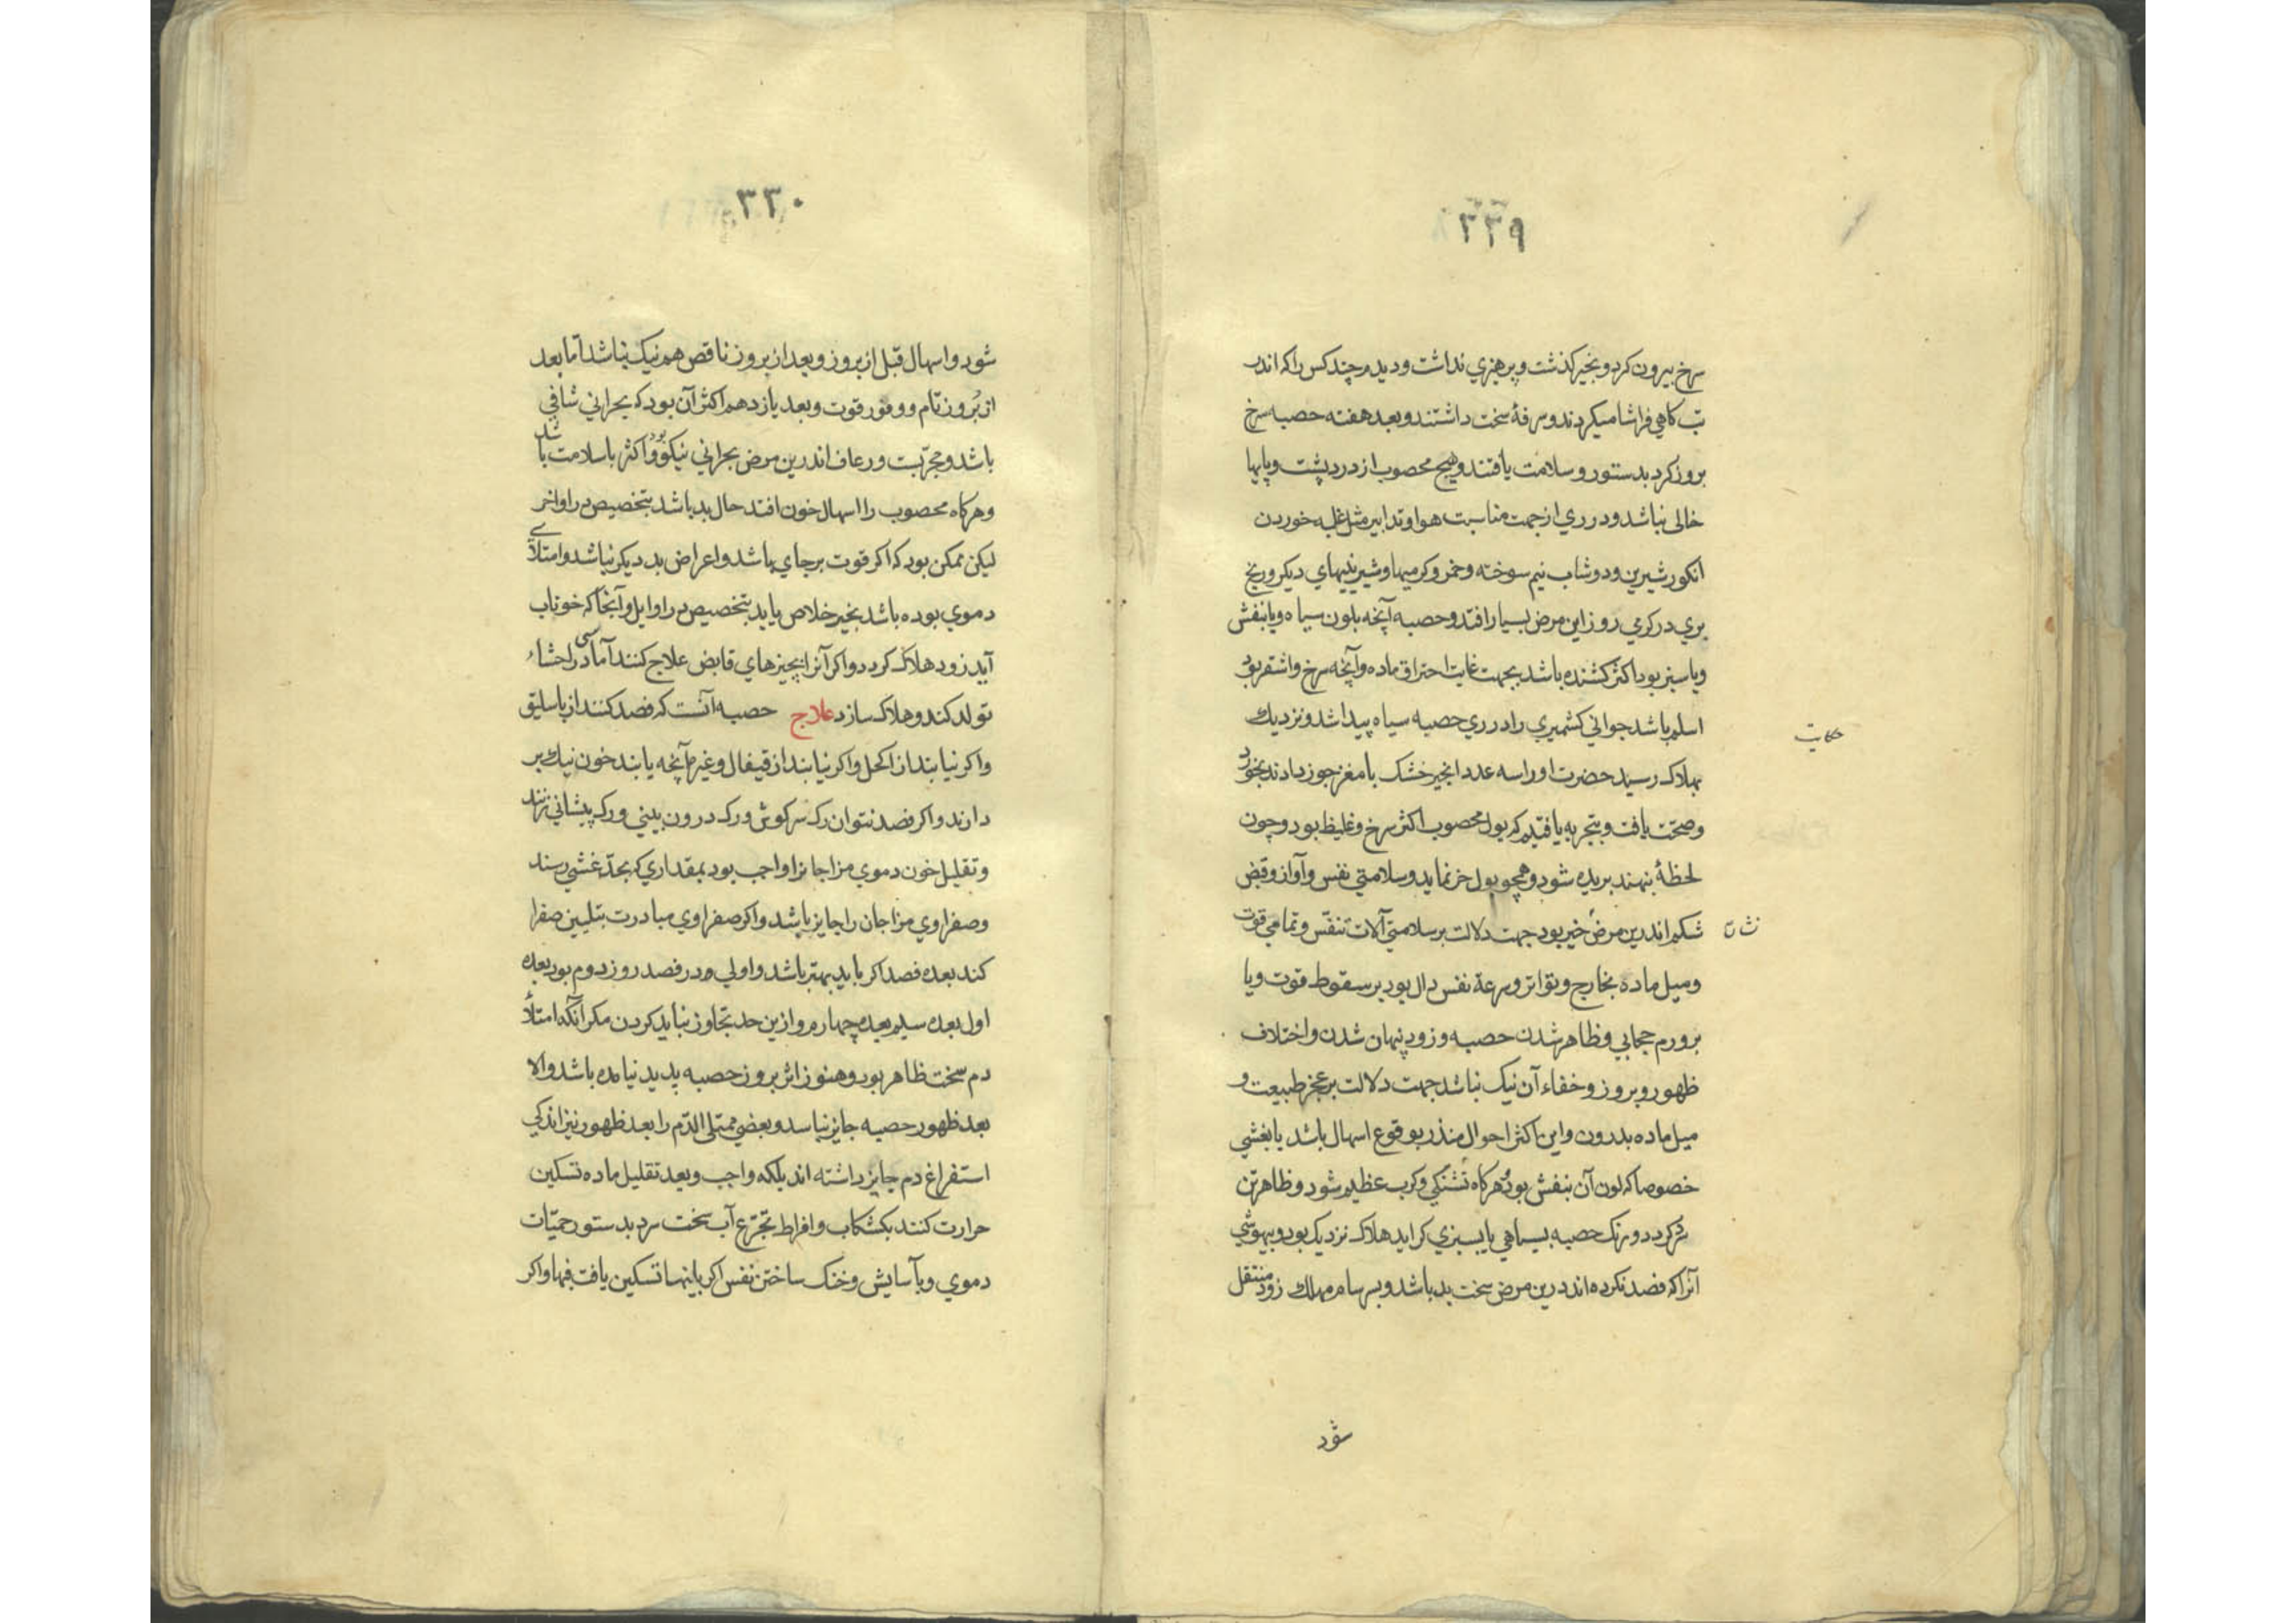 ۳۲۹
سرخ بیرون کرد و بخیر کذشت و پرهیزی نداشت و دیدم چند کس را که اندر
تب کاهی فراشا میکردند و سرفهٔ سخت داشتند و بعد هفته حصبه سرخ
بروز کرد بدستور و سلامت یافتند و هیچ محصوب از درد پشت و پایها
خالی نباشد و در ری از جهت مناسبت هوا و تدابیر مثل غلبه خوردن
انکور شیرین و دوشاب نیم سوخته و خمر و کرمیها و شیرینیهای دیکر و رنج
بری در کرمی روز این مرض بسیار افتد و حصبه آنچه بلون سیاه و یا بنفش
و یا سبز بود اکثر کشنده باشد بجهت غایت احتراق ماده و آنچه سرخ و اشقر بود
اسلم باشد جوانی کشمیری را در ری حصبه سیاه پیدا شد و نزدیك
حکایت
بهلاک رسید حضرت او را سه عدد انجیر خشک با مغز جوز دادند بخورد
و صحت یافت و بتجربه یافتیم که بول محصوب اکثر سرخ و غلیظ بود و چون
لحظهٔ بنهند بریده شود و همچو بول خر نماید و سلامتی نفس و آواز و قبض
شکم اندرین مرض خیر بود جهت دلالت بر سلامتی آلات تنفّس و تمامی قوت
نشان
و میل ماده بخارج و تواتر و سرعة نفس دال بود بر سقوط قوت و یا
بر ورم حجابی و ظاهر شدن حصبه و زود پنهان شدن و اختلاف
ظهور و بروز و خفاء آن نیک نباشد جهت دلالت بر عجز طبیعت و
میل ماده بدرون و این اکثر احوال منذر بوقوع اسهال باشد یا بغشی
خصوصا که لون آن بنفش بود و هرکاه تشنکی و کرب عظیم شود و ظاهر تن
کردد و رنک حصبه بسیاهی یا بسبزی کراید هلاک نزدیک بود و بیهوشی
آنرا که فصد نکرده اند درین مرض سخت بد باشد و بسرسام مهلك زود منتقل
شود
۳۳۰
شود و اسهال قبل از بروز و بعد از بروز ناقص هم نیک نباشد امّا بعد
از بُروز تام و وفور قوت و بعد یازدهم اکثر آن بود که بحرانی شافی
باشد و مجرّبست و رعاف اندرین مرض بحرانی نیکو بود و اکثر با سلامت باشد
و هرکاه محصوب را اسهال خون افتد حال بد باشد بتخصیص در اواخر
لیکن ممکن بود که اکر قوت بر جای باشد و اعراض بد دیکر نباشد و امتلای
دموی بوده باشد بخیر خلاص یابد بتخصیص در اوایل و آنجا که خوناب
آید زود هلاک کردد و اکر آنرا بچیزهای قابض علاج کنند آماسی در احشاء
تولد کند و هلاک سازد علاج حصبه آنست که فصد کنند از باسلیق
و اکر نیابند از اکحل و اکر نیابند از قیفال و غیره آنچه یابند خون نیك بر
دارند و اکر فصد نتوان رک سر کوش و رک درون بینی و رک پیشانی زنند
و تقلیل خون دموی مزاجانرا واجب بود بمقداری که بحدّ غشی رسند
و صفراوی مزاجان را جایز باشد و اکر صفراوی مبادرت بتلیین صفرا
کند بعده فصد اکر باید بهتر باشد و اولی در فصد روز دوم بود بعده
اول بعده سیم بعده چهارم و ازین حد تجاوز نباید کردن مکر آنکه امتلاءٔ
دم سخت ظاهر بود و هنوز اثر بروز حصبه پدید نیامده باشد و الا
بعد ظهور حصبه جایز نباسد و بعضی ممتلی الدّم را بعد ظهور نیز اندکی
استفراغ دم جایز داشته اند بلکه واجب و بعد تقلیل ماده تسکین
حرارت کنند بکشکاب و افراط تجرّع آب سخت سرد بدستور حمیّات
دموی و بآسایش و خنک ساختن نفس اکر باینها تسکین یافت فبها و اکر